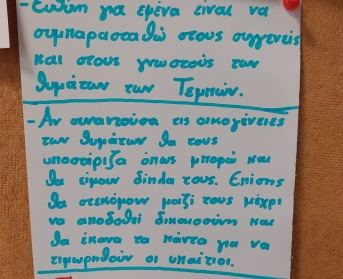 - Ευθύνη για εμένα είναι να
συμπαρασταθώ στους συγγενείς
και στους γνωστούς των
θυμάτων των Τεμπών.
- Αν συναντούσα τις οικογένειες
των θυμάτων θα τους
υποστήριζα όπως μπορώ και
θα είμουν δίπλα τους. Επίσης
θα στεκόμουν μαζί τους μέχρι
να αποδοθεί δικαιοσύνη και
θα έκανα τα πάντα για να
τιμωρηθούν οι υπαίτιοι.